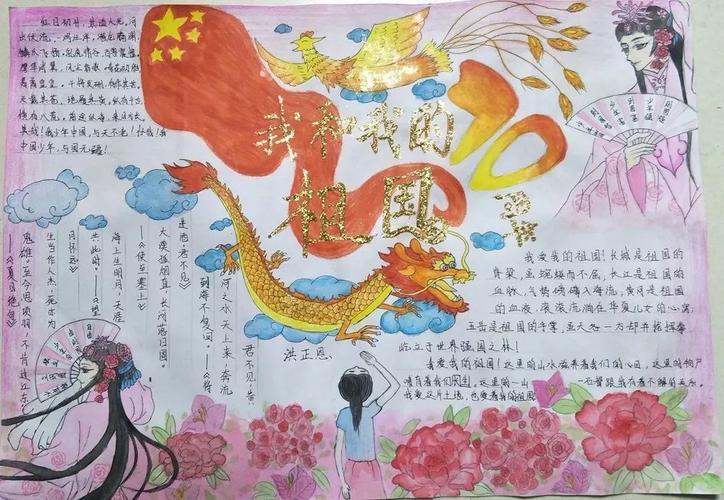 红日初升,其道大光。河
出伏流,一泻汪洋。潜龙腾渊,
鳞爪飞扬。乳虎啸谷,百兽震惶。
鹰隼试翼,风尘吸张。奇花初胎,
矞矞皇皇。干将发硎,有作其芒。
天戴其苍,地履其黄。纵有千古,
横有八荒。前途似海,来日方长。
美哉!我少年中国,与天不老!壮哉!我
中国少年,与国无疆!
我和我的
祖国
70
周年
君不见,黄
河之水天上来,奔流
到海不复回。——《将
进酒·君不见》
大漠孤烟直,长河落日圆。
——《使至塞上》
海上生明月,天涯
共此时。——《望
月怀远》
生当作人杰,死亦为
鬼雄。至今思项羽,不肯过江东。
——《夏日绝句》
洪正恩
我爱我的祖国!长城是祖国的
脊梁,蜿蜒而不屈,长江是祖国的
血脉,气势磅礴入海流;黄河是祖国
的血液,滚滚流淌在华夏儿女的心窝;
五岳是祖国的手掌,
屹立于世界强国之林!
我爱我的祖国!这里的山水滋养着我们的心田,这里的物产
哺育着我们民生,这里的一山一石都跟我有着不解的
我爱这片土地,也爱着我的祖国